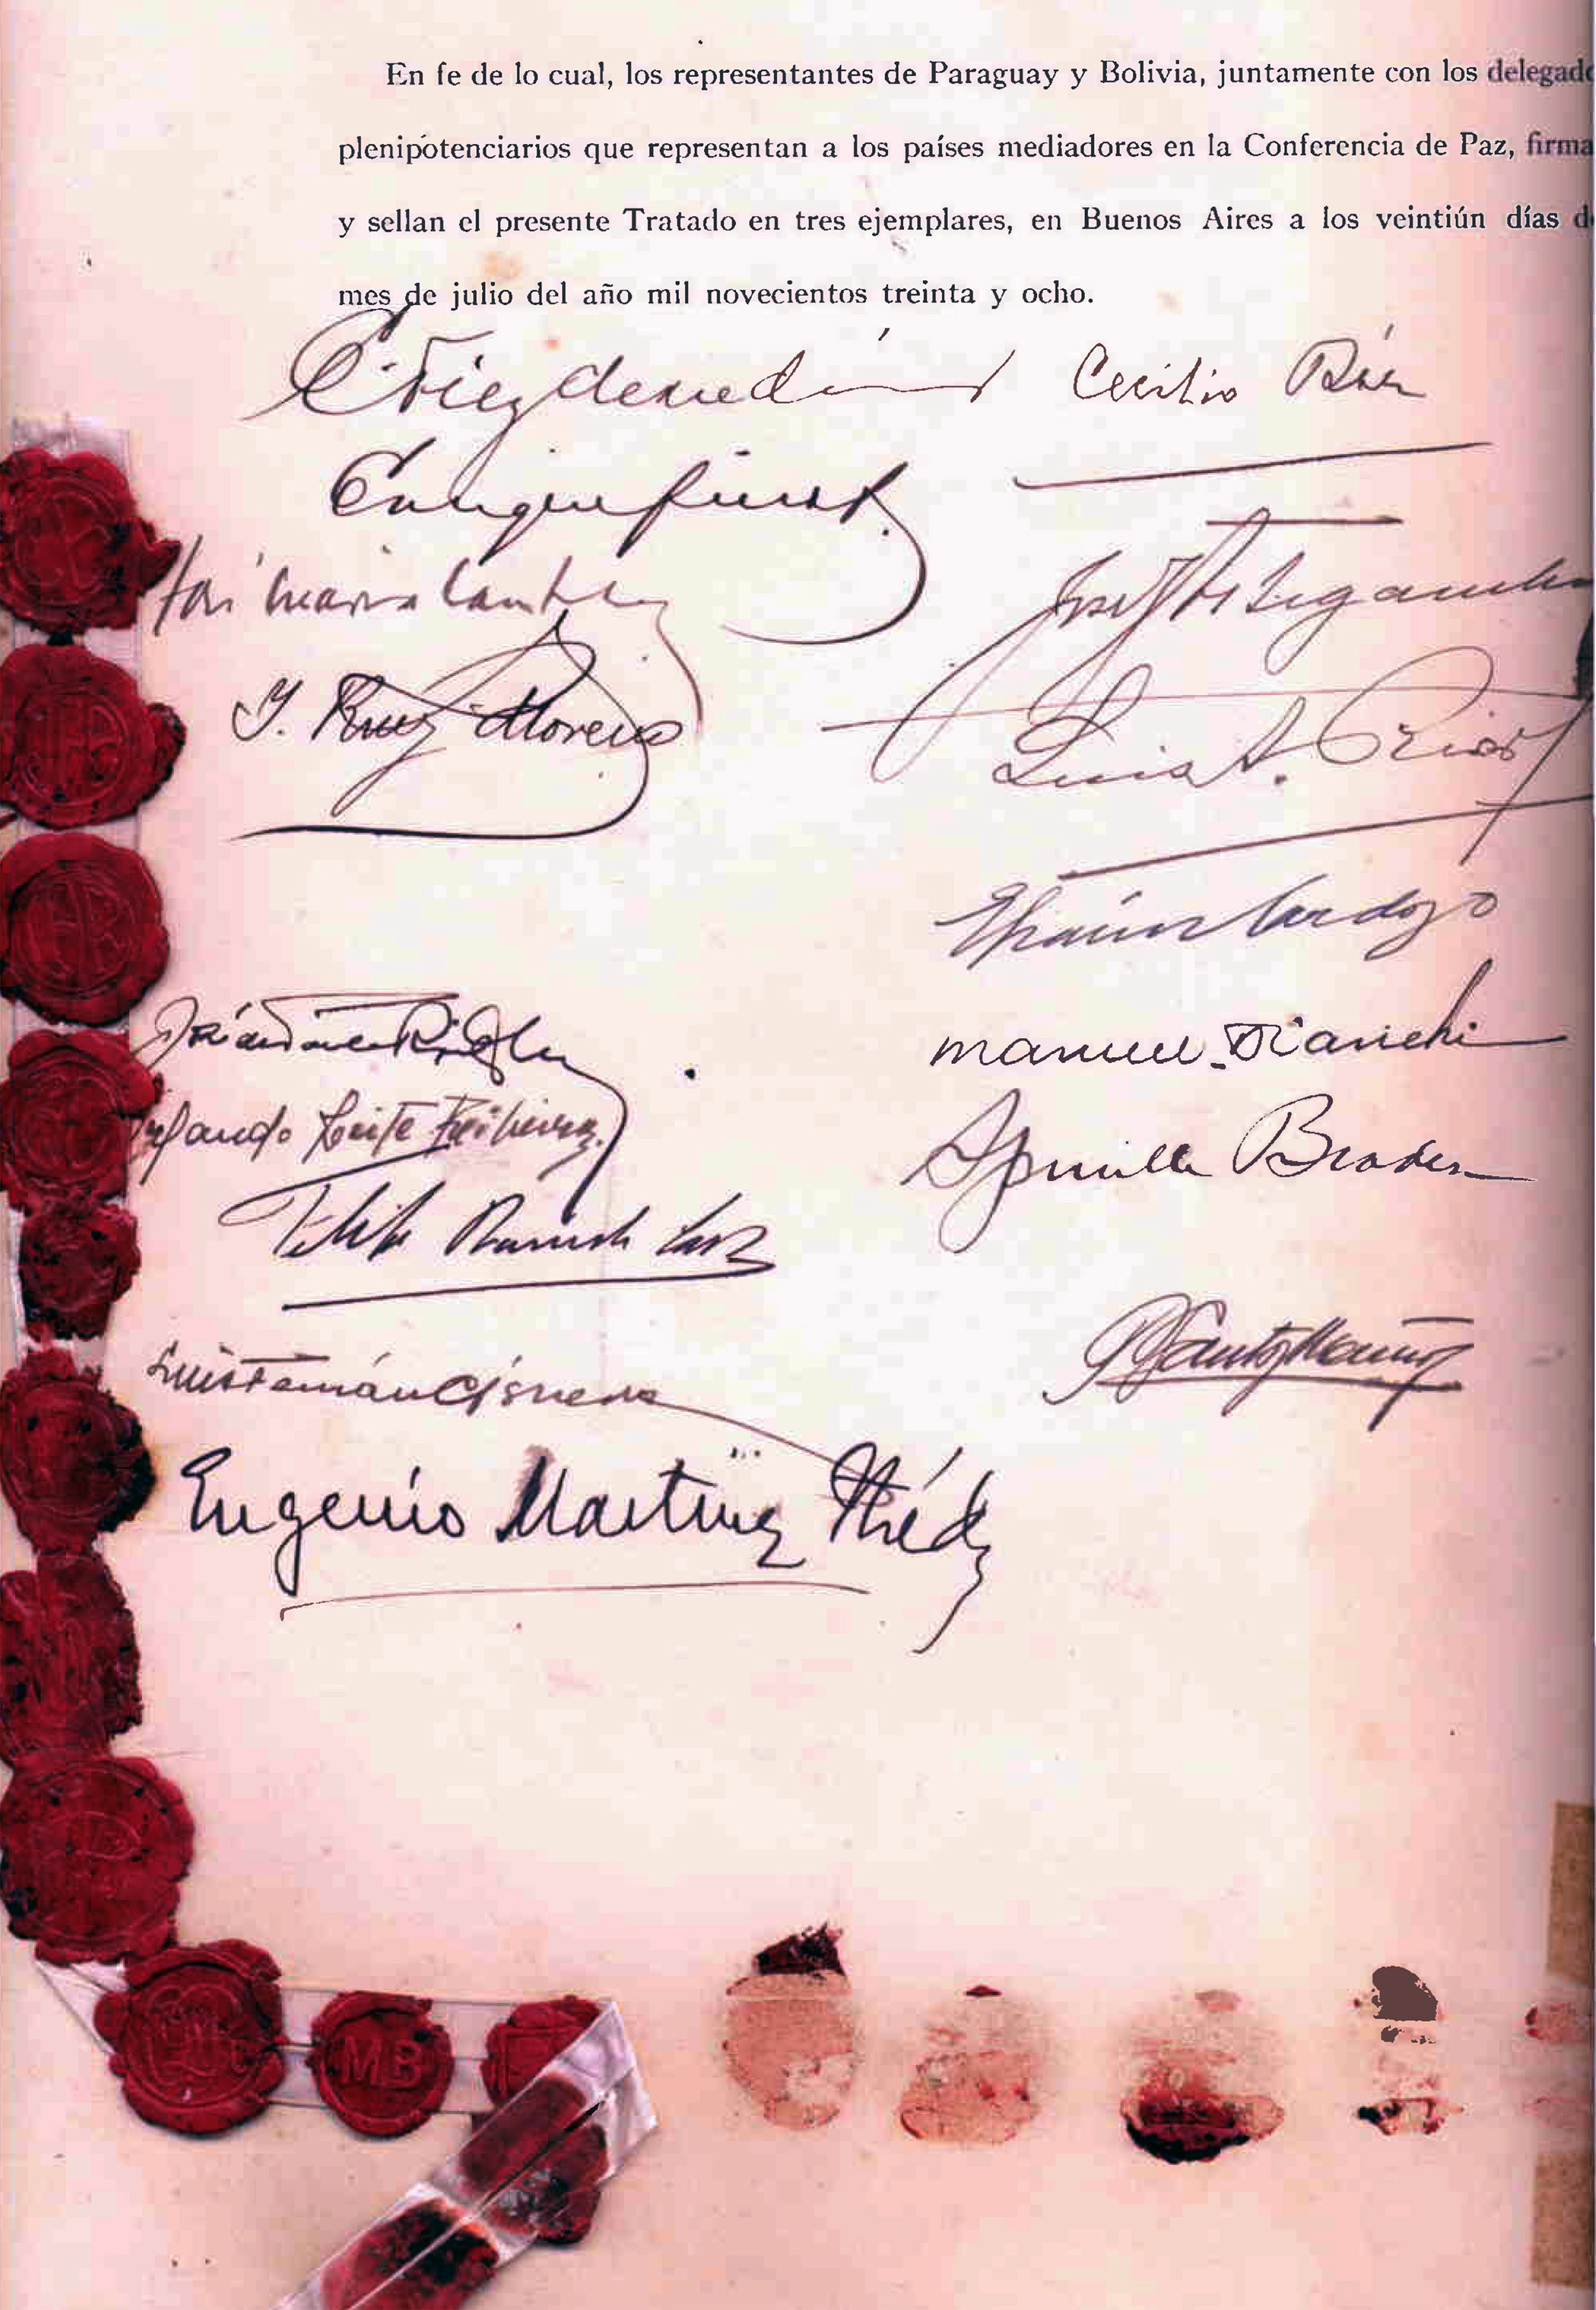 En fe de lo cual, los representantes de Paraguay y Bolivia, juntamente con los delegado
plenipotenciarios que representan a los países mediadores en la Conferencia de Paz, firma
y sellan el presente Tratado en tres ejemplares, en Buenos Aires a los veintiún días d
mes de julio del año mil novecientos treinta y ocho.
E. Diez de Medina
Cecilio Báez
Enrique Finot
José María Cantilo
I. Ruiz Moreno
Luis A. Riart
Efraím Cardozo
Manuel Bianchi
Orlando Leite Ribeiro
Spruille Braden
Felipe Barreda Laos
Luis Fernán Cisneros
Eugenio Martínez Thédy
MB